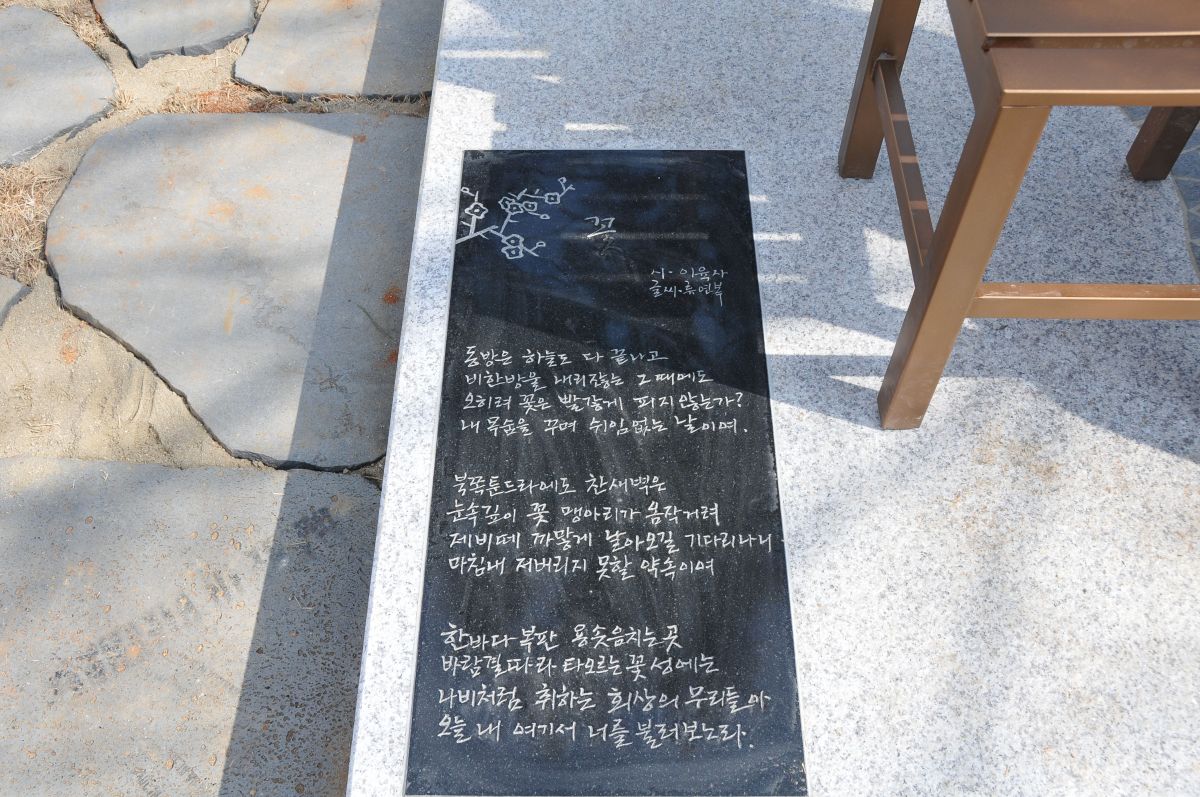 꽃
시· 이육사
글씨·류연복
동방은 하늘도 다 끝나고
비한방울 내리잖는 그때에도
오히려 꽃은 빨갛게 피지 않는가?
내 목숨을 꾸며 쉬임없는 날이여.
북쪽툰드라에도 찬새벽은
눈속깊이 꽃 맹아리가 옴작거려
제비떼 까맣게 날아오길 기다리나니
마침내 저버리지 못할 약속이여
한바다복판 용솟음치는곳
바람결따라 타오르는꽃성에는
나비처럼 취하는 회상의 무리들아
오늘 내 여기서 너를 불러보노라.